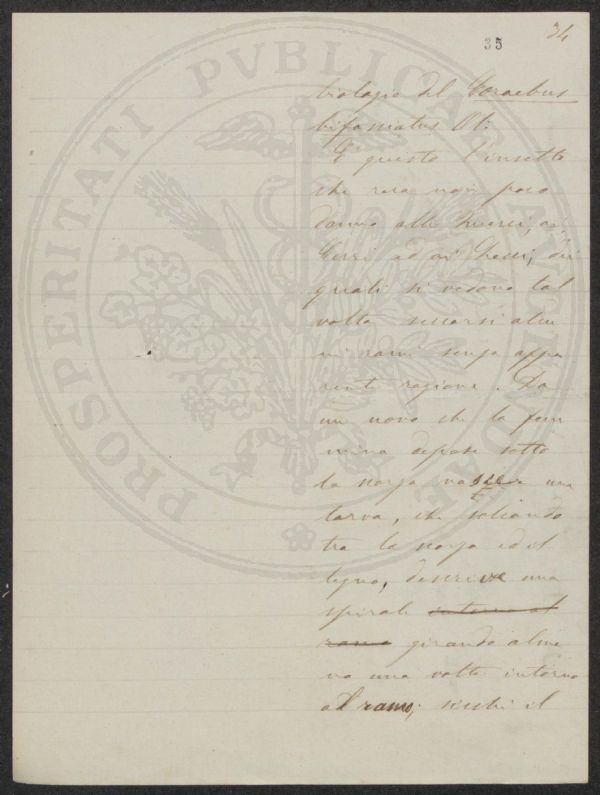 34
35
biologia del Coraebus
bifasciatus Ol.
È questo l'insetto
che reca non poco
danno alle Querci, ai
Cerri ed ai Lecci, dei
quali si vedono tal
volta seccarsi alcu
ni rami senza appa
rente ragione. Da
un uovo che la fem
mina depose sotto
la scorza nasce una
larva, che
tra la scorza ed il
legno, descrive una
spirale intorno al
ramo girando alme
no una volta intorno
al ramo; sicchè il
PROSPERITATI PVBLICAE AVGENDAE